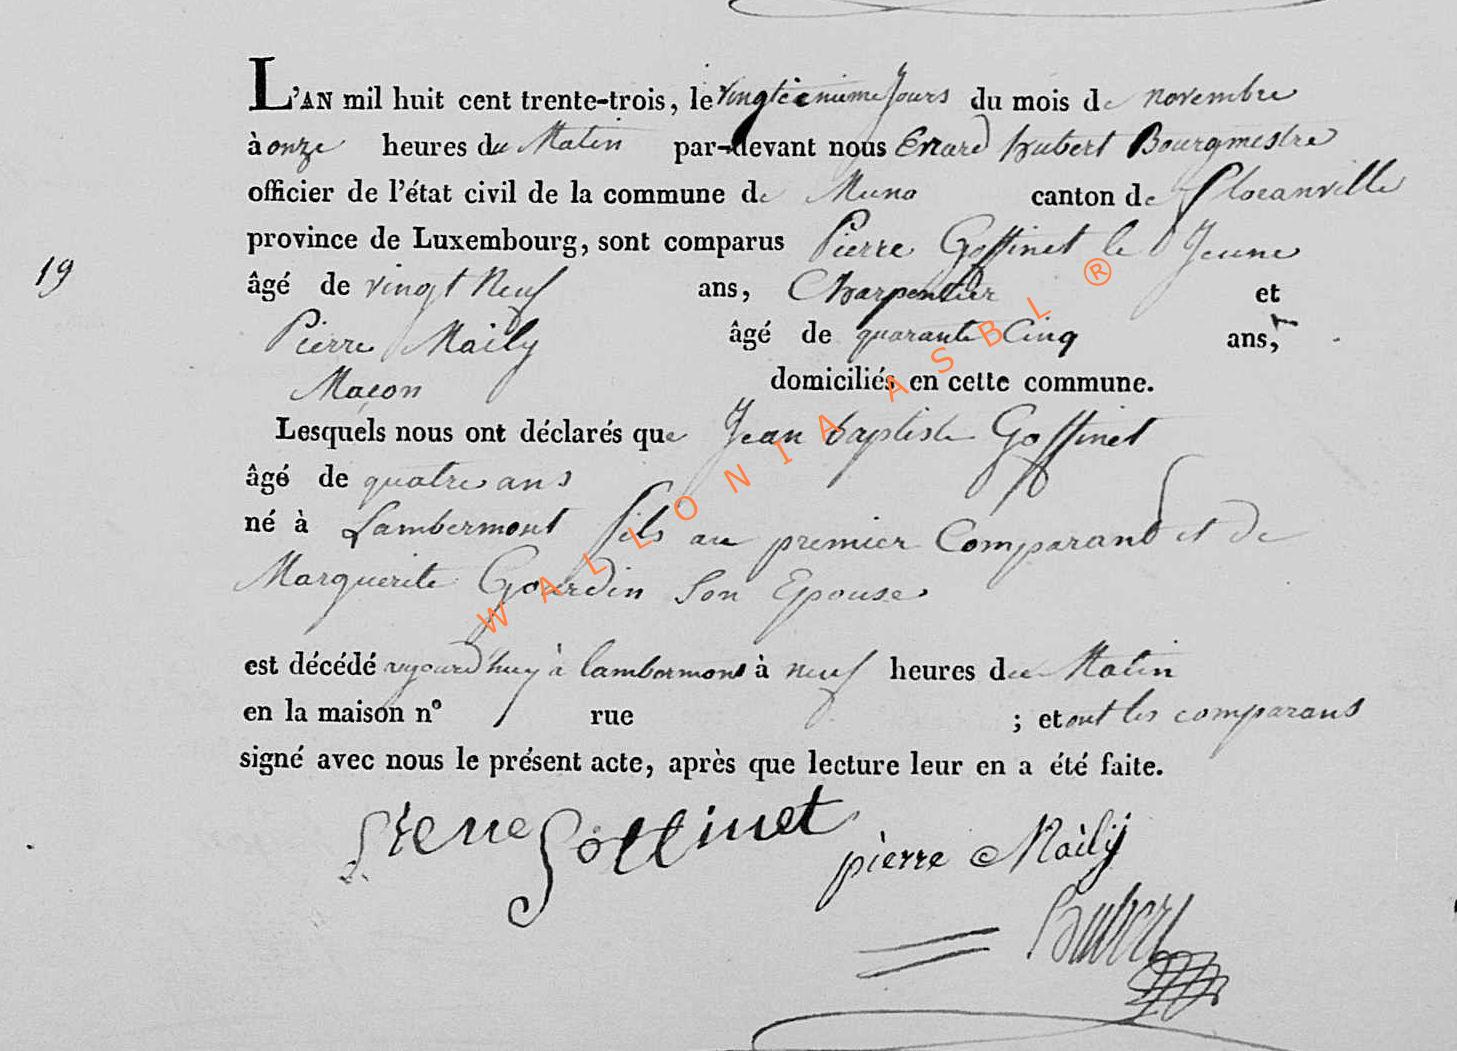 L'AN mil huit cent trente-trois, le vingtieniéme jours du mois de novembre
à onze heures du Matin par-devant nous Errard hubert Bourgmestre
officier de l'état civil de la commune de Muno canton de floranville
province de Luxembourg, sont comparus Pierre Goffinet le Jeune
19
âgé de vingt Neuf ans, Charpentier et
Pierre Maily âgé de quarante Cinq ans,
Maçon domiciliés en cette commune.
Lesquels nous ont déclarés que Jean baptiste Goffinet
âgé de quatre ans
né à Lambermont fils au premier Comparand et de
Marguerite Gourdin Son Epouse
est décédé aujourd'huy à lambermont à neuf heures du Matin
en la maison n° rue ; et ont les comparans
signé avec nous le présent acte, après que lecture leur en a été faite.
Pierre Goffinet
pierre Maily
Hubert
WALLONIA ASBL ®